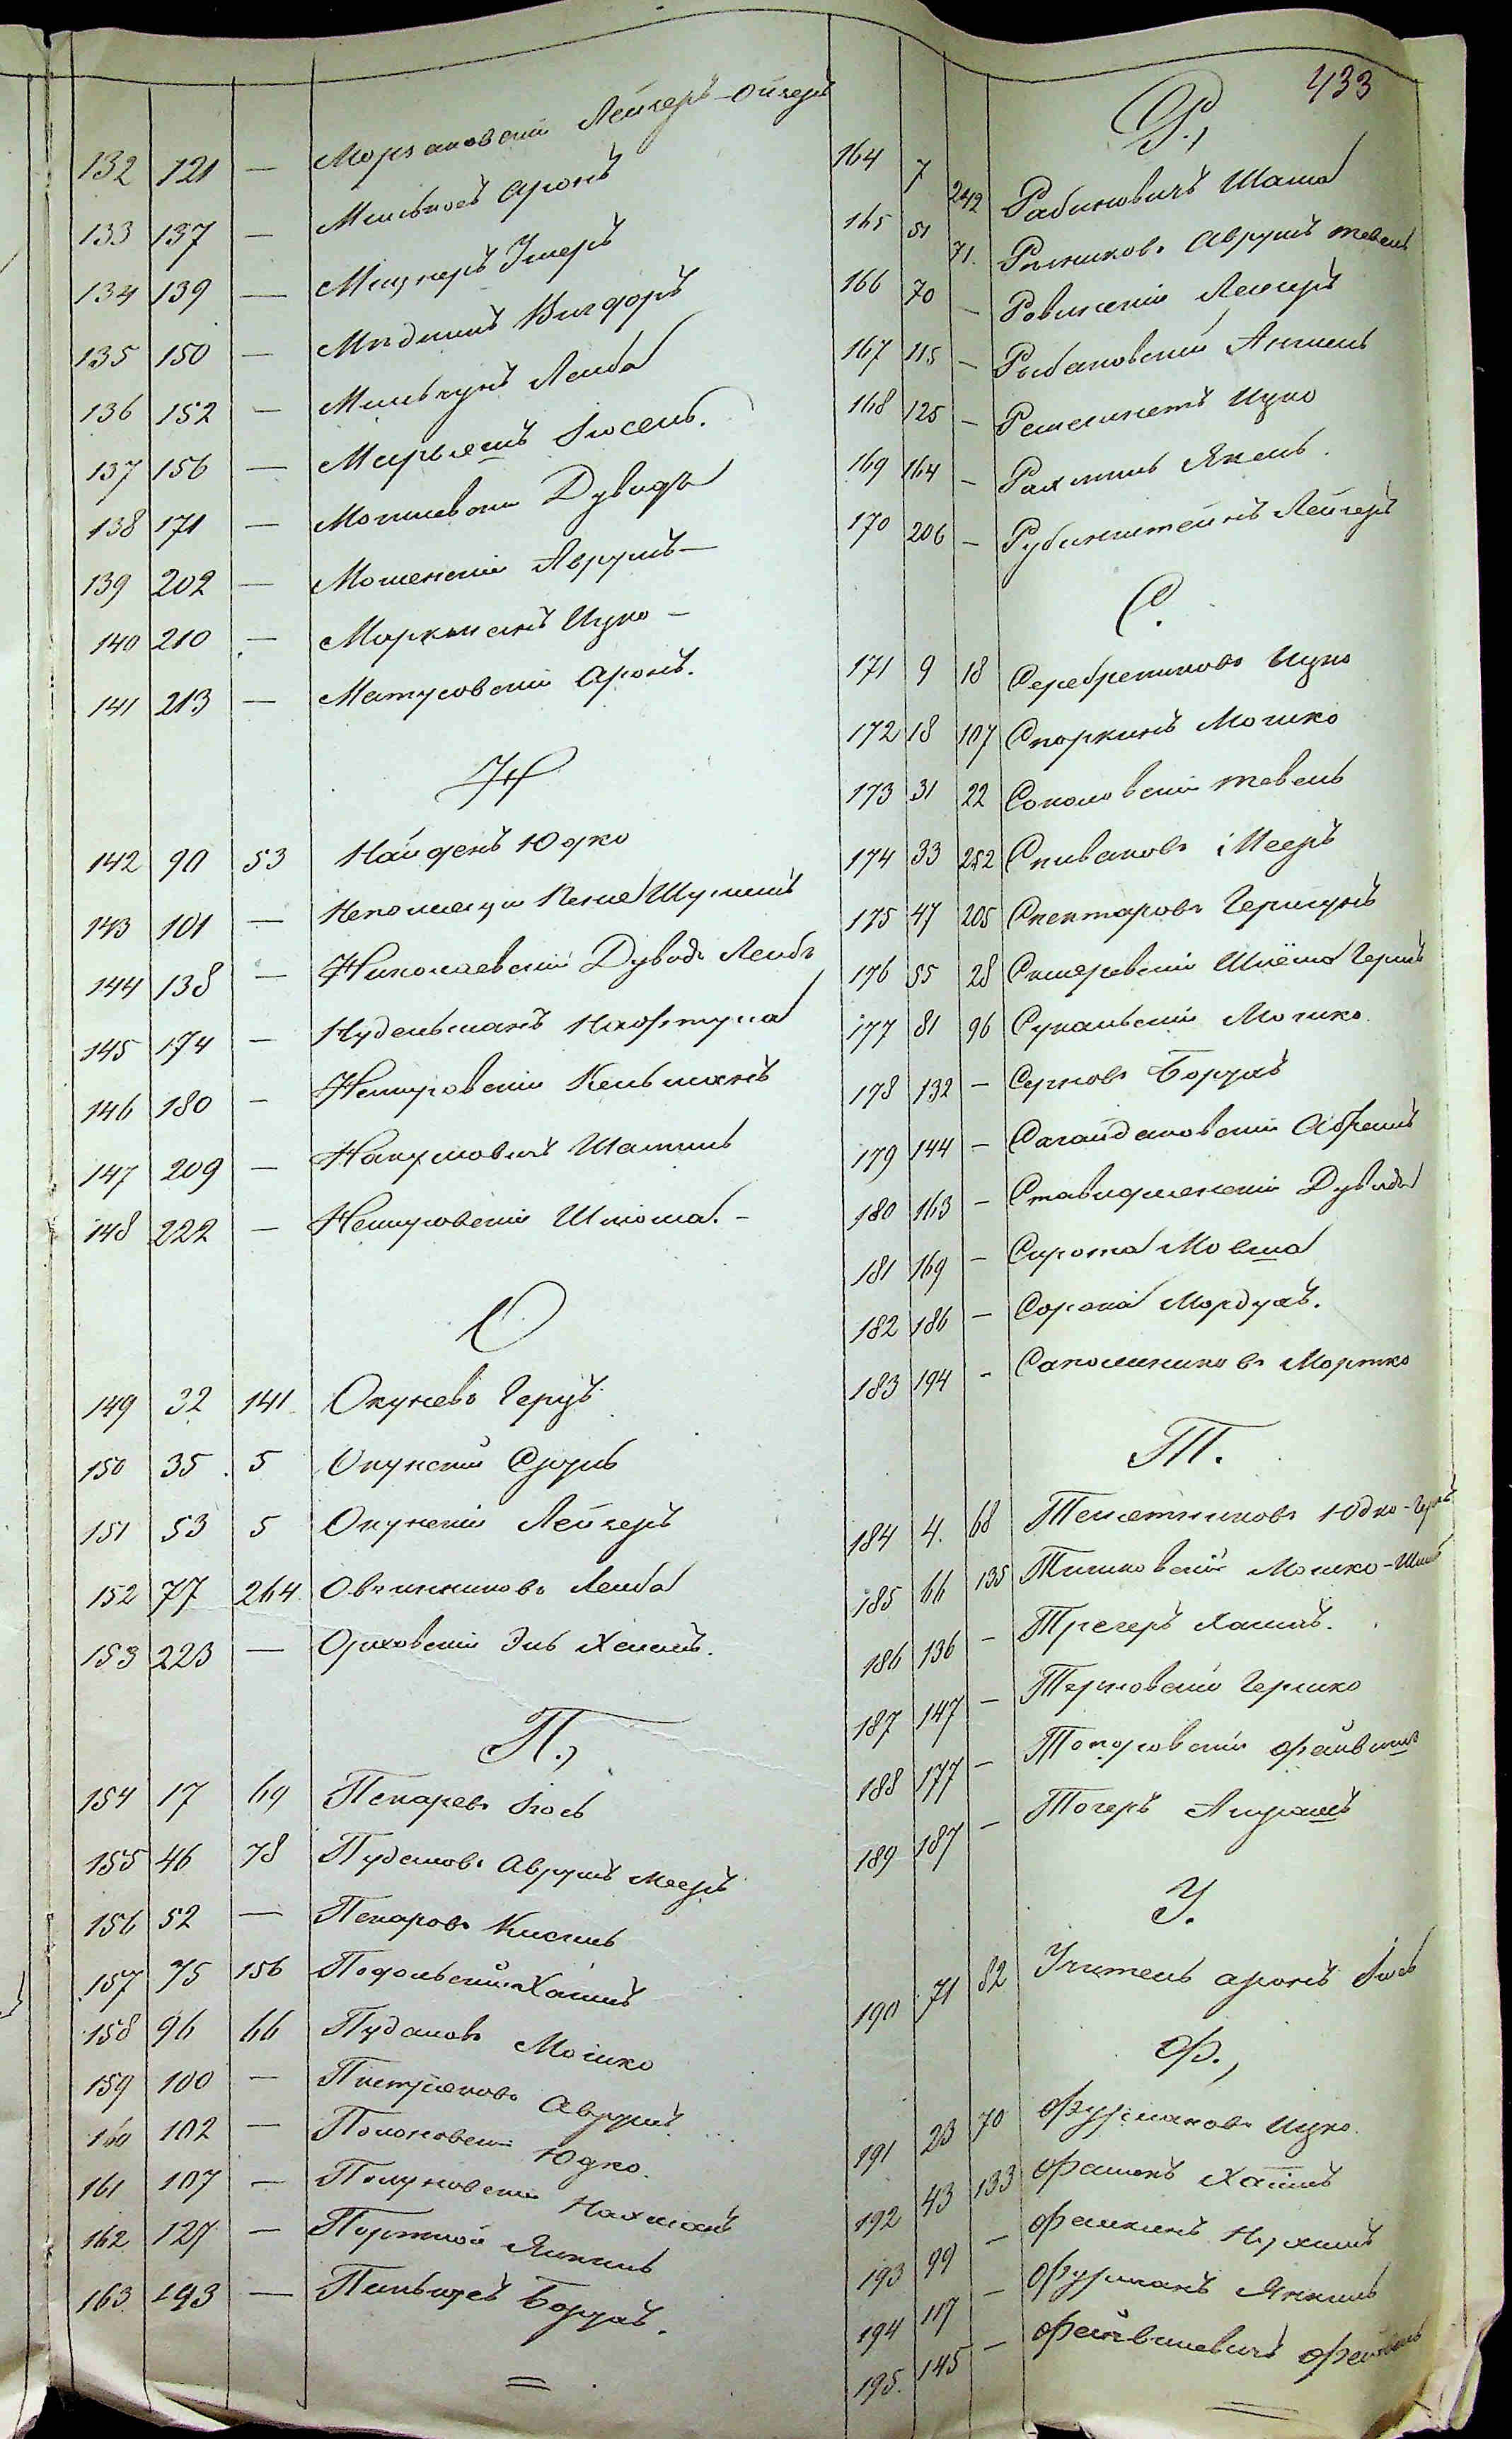 433
132 121 — Моргановскій Лейзеръ-Ойзеръ
133 137 — Мильнеръ Аронъ
134 139 — Мицнеръ Умеръ
135 150 — Медникъ Вигдоръ
136 152 — Мильгунъ Лейба
137 156 — Марьямъ Іосель.
138 171 — Могилевскій Дувидъ
139 202 — Мошенскій Аврумъ —
140 210 — Маркманъ Ицко —
141 213 — Матусовскій Аронъ.
Н
142 90 53 Найденъ Юдко
143 101 — Непомнящи
144 138 — Николаевскій Дувидъ Лейбъ
145 174 — Нудельманъ Нафтула
146 180 — Немировскій Кельманъ
147 209 — Нахумовичъ
148 222 — Немировскій Шлема. —
О
149 32 141 Окуневъ Герцъ
150 35 5 Окунскій Сруль
151 53 5 Окунскій Лейзеръ
152 77 264 Овчинниковъ Лейба
153 223 — Ориховскій Эль Хаимъ.
П.,
154 17 69 Пекаревъ Іось
155 46 78 Пудамовъ Аврумъ Мееръ
156 52 — Пекаровъ Кисиль
157 75 156 Подольскій Хаимъ
158 96 66 Пудановъ Мошко
159 100 — Пистряковъ Аврумъ.
160 102 — Полоновскій Юдко.
161 107 — Полуновскій Нахманъ
162 127 — Портной Янкель
163 193 — Пильщъ Борухъ.
Р.,
164 7 242 Рабиновичъ Шама
165 51 71. Резниковъ Аврумъ Тевель
166 70 — Ровинскій Лейзеръ
167 115 — Рыбаковскій Аншель
168 125 — Решетникъ Ицко
169 164 — Рахлинъ Янкель.
170 206 — Рубинштейнъ Лейзеръ
С.
171 9 18 Серебренниковъ Ицко
172 18 107 Скоркинъ Мошко
173 31 22 Соколовскій Тевель
174 33 252 Спиваковъ Мееръ
175 47 205 Спектаровъ Гершунъ
176 55 28 Сквирскій Шлёма Гершъ
177 81 96 Сукальскій Мошко.
178 132 — Сурновъ Борухъ
179 144 — Сагайдаковскій Абрамъ
180 163 — Ставищенскій Дувидъ
181 169 — Сирота Мовша
182 186 — Сорока Мордухъ.
183 194 — Сапожниковъ Мортко
Т.
184 4. 68 Телятниковъ Юдко-Гершъ
185 66 135 Тишковскій Мошко-
186 136 — Трегеръ Хаимъ.
187 147 — Терновскій Гершко
188 177 — Топоровскій Файвишъ
189 187 — Тогеръ
У.
190 71 82 Учитель Аронъ Іось
Ф.,
191 23 70 Фурмановъ Ицко.
192 43 133 Фаменъ Хаимъ
193 99 — Файкинъ Нухимъ
194 117 — Фурманъ Янкель
195. 145 — Файвишевичъ